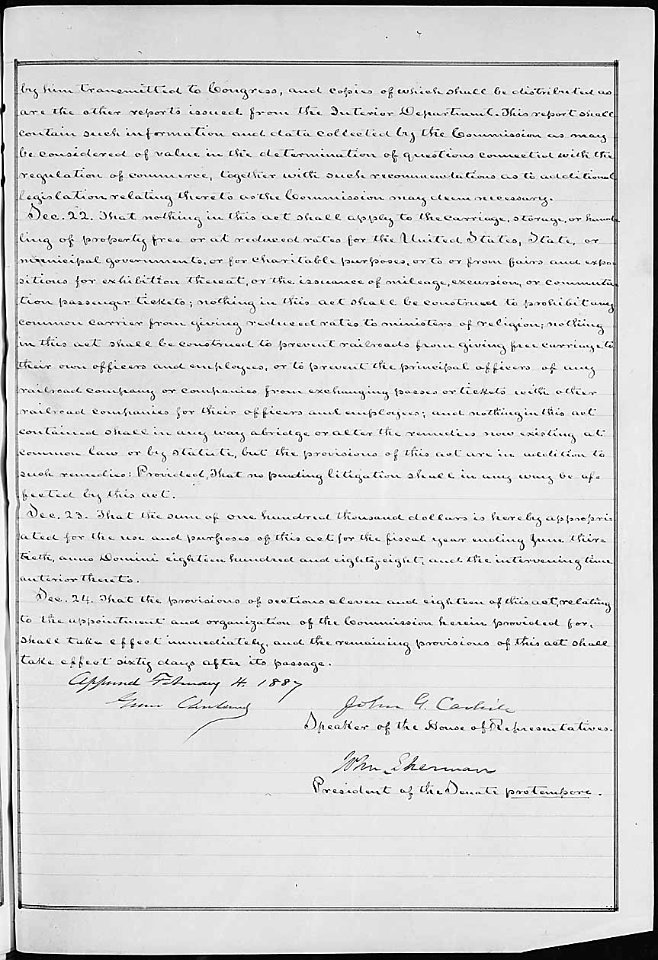 by him transmitted to Congress, and copies of which shall be distributed as
are the other reports issued from the Interior Department. This report shall
contain such information and data collected by the Commission as may
be considered of value in the determination of questions connected with the
regulation of commerce, together with such recommendations as to additional
legislation relating thereto as the Commission may deem necessary.
Sec. 22. That nothing in this act shall apply to the carriage, storage, or hand
ling of property free or at reduced rates for the United States, State, or
municipal governments, or for charitable purposes, or to or from fairs and expo
sitions for exhibition thereat, or the issuance of mileage, excursion, or commuta
tion passenger tickets; nothing in this act shall be construed to prohibit any
common carrier from giving reduced rates to ministers of religion; nothing
in this act shall be construed to prevent railroads from giving free carriage to
their own officers and employees, or to prevent the principal officers of any
railroad company or companies from exchanging passes or tickets with other
railroad companies for their officers and employees; and nothing in this act
contained shall in any way abridge or alter the remedies now existing at
common law or by statute, but the provisions of this act are in addition to
such remedies: Provided, That no pending litigation shall in any way be af-
fected by this act.
Sec. 23. That the sum of one hundred thousand dollars is hereby appropri
ated for the use and purposes of this act for the fiscal year ending June thir-
tieth, anno Domini eighteen hundred and eighty-eight, and the intervening time
anterior thereto.
Sec. 24. That the provisions of sections eleven and eighteen of this act, relating
to the appointment and organization of the Commission herein provided for,
shall take effect immediately, and the remaining provisions of this act shall
take effect sixty days after its passage.
Approved February 4. 1887
Grover Cleveland
John G. Carlisle
Speaker of the House of Representatives.
John Sherman
President of the Senate pro tempore.